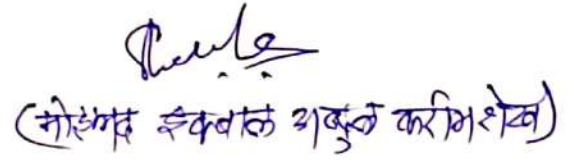 (मोहमद इकबाल अब्दुल करीम शेख)